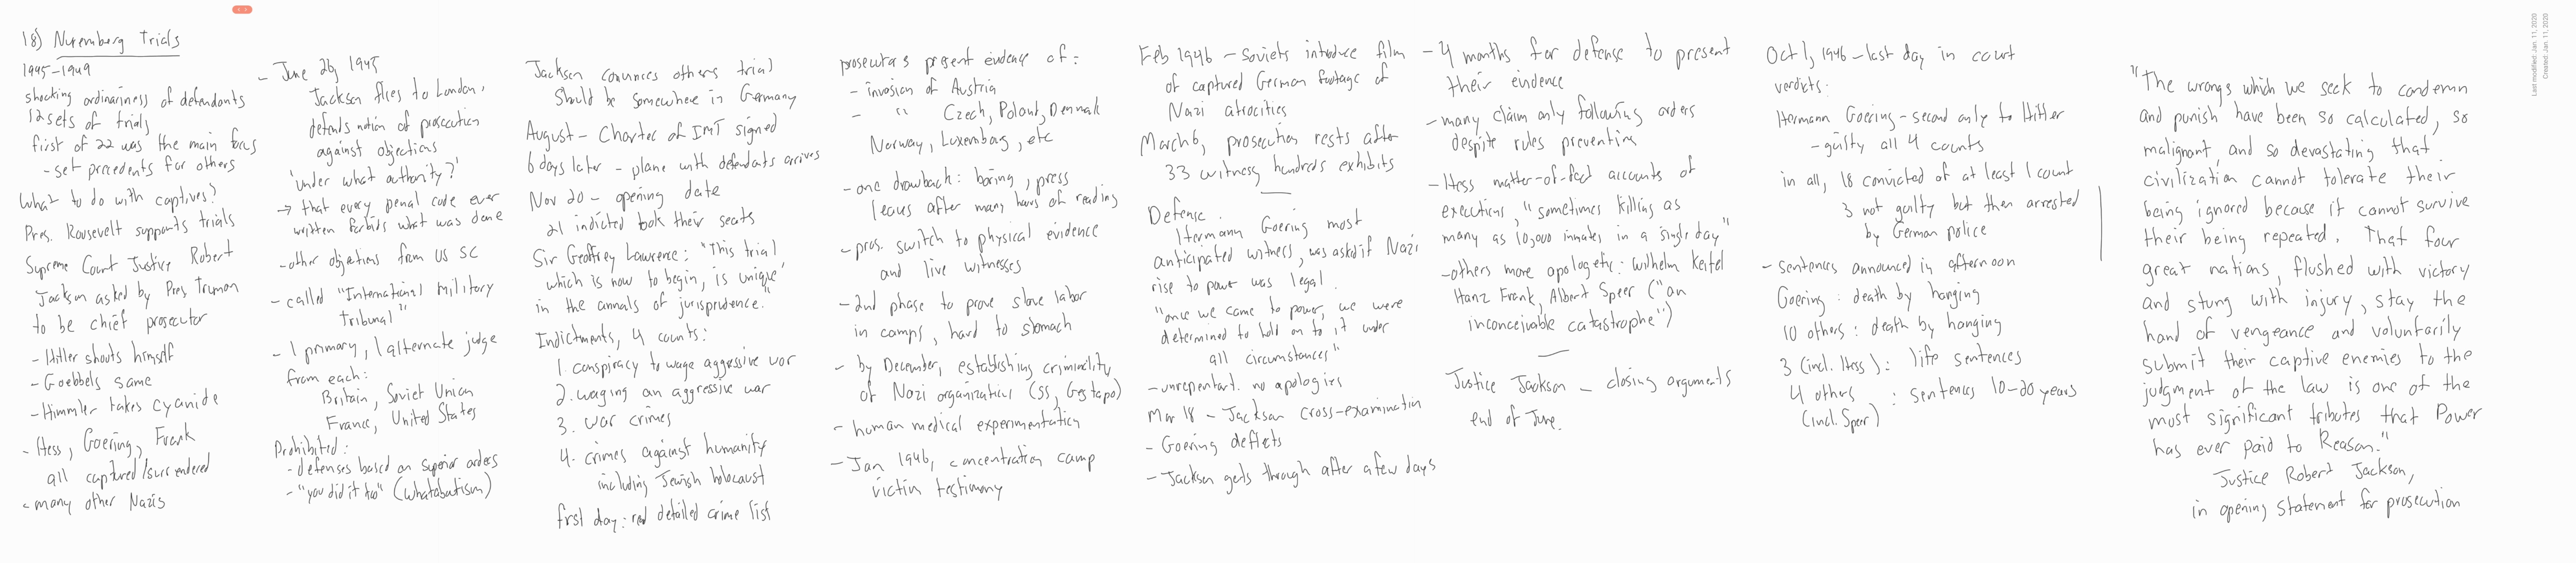 18) Nuremberg Trials
1945-1949
shocking ordinariness of defendants
12 sets of trials
first of 22 was the main focus
- set precedents for others
What to do with captives?
Pres. Roosevelt supports trials
Supreme Court Justice Robert
Jackson asked by Pres Truman
to be chief prosecutor
- Hitler shoots himself
- Goebbels same
- Himmler takes cyanide
- Hess, Goering, Frank
all captured/surrendered
- many other Nazis
- June 26, 1945
Jackson flies to London,
defends notion of prosecution
against objections
'under what authority?'
→ that every penal code ever
written forbids what was done
- other objections from US SC
- called "International Military
Tribunal"
- 1 primary, 1 alternate judge
from each:
Britain, Soviet Union
France, United States
Prohibited:
- defenses based on superior orders
- "you did it too" (whatabotism)
Jackson convinces others trial
should be somewhere in Germany
August - Charter of IMT signed
6 days later - plane with defendants arrives
Nov 20 - opening date
21 indicted took their seats
Sir Geoffrey Lawrence: "This trial
which is now to begin, is unique
in the annals of jurisprudence."
Indictments, 4 counts:
1. conspiracy to wage aggressive war
2. waging an aggressive war
3. war crimes
4. crimes against humanity
including Jewish holocaust
first day: read detailed crime list
prosecutors present evidence of:
- invasion of Austria
- " Czech, Poland, Denmark
Norway, Luxembourg, etc
- one drawback: boring, press
leaves after many hours of reading
- pros. switch to physical evidence
and live witnesses
- 2nd phase to prove slave labor
in camps, hard to stomach
- by December, establishing criminality
of Nazi organizations (SS, Gestapo)
- human medical experimentation
- Jan 1946, concentration camp
victim testimony
Feb 1946 - Soviets introduce film
of captured German footage of
Nazi atrocities
March 6, prosecution rests after
33 witness hundreds exhibits
Defense.
Hermann Goering most
anticipated witness, was asked if Nazi
rise to power was legal.
"once we came to power, we were
determined to hold on to it under
all circumstances"
- unrepentant. no apologies
Mar 18 - Jackson cross-examination
- Goering deflects
- Jackson gets through after a few days
- 4 months for defense to present
their evidence
- many claim only following orders
despite rules preventing
- Hess matter-of-fact accounts of
executions, "sometimes killing as
many as 10,000 inmates in a single day"
- others more apologetic: Wilhelm Keitel
Hanz Frank, Albert Speer ("an
inconceivable catastrophe")
Justice Jackson - closing arguments
end of June.
Oct 1, 1946 - last day in court
verdicts:
Hermann Goering - second only to Hitler
- guilty all 4 counts
in all, 18 convicted of at least 1 count
3 not guilty but then arrested
by German police
- sentences announced in afternoon
Goering: death by hanging
10 others: death by hanging
3 (incl. Hess): life sentences
4 others : sentences 10-20 years
(incl. Speer)
"The wrongs which we seek to condemn
and punish have been so calculated, so
malignant, and so devastating that
civilization cannot tolerate their
being ignored because it cannot survive
their being repeated. That four
great nations, flushed with victory
and stung with injury, stay the
hand of vengeance and voluntarily
submit their captive enemies to the
judgment of the law is one of the
most significant tributes that Power
has ever paid to Reason."
Justice Robert Jackson,
in opening statement for prosecution
Last modified: Jan. 11, 2020
Created: Jan. 11, 2020